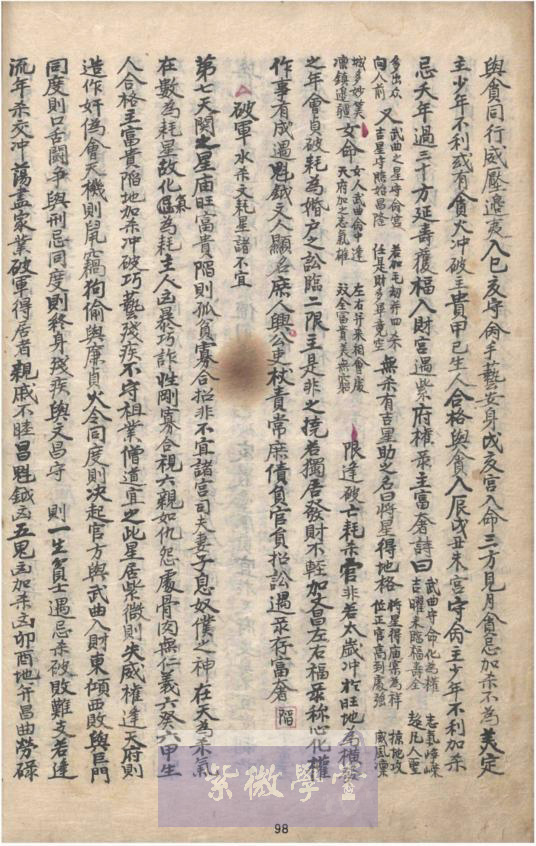 與貪同行威壓邉夷入巳亥守命手藝安身戊亥宮入命三方見月貪忌加杀不為美定
主少年不利或有貪火冲破主貴甲己生人合格與貪入辰戌丑未宮守命主少年不利加杀
忌夭年過三十方延壽獲福入財宮遇紫府權彔主富奢詩曰 武曲守命化為權 吉曜来臨福壽全 志氣崢嶸
多出众 向人前 又 武曲之星守命宮 吉星守照始昌隆 若加毛劫并四杀 任是財多畢竟空 無杀有吉星助之名曰將星得地格 將星得庙禀為祥 位正官高到處強
城多妙美 凛鎮邊疆 女命 女人武曲命中逢 天府加之志氣雄 左右并来相會處 双全富貴美無窮 限逢破亡耗杀官非若太歲冲於旺地為横發
之年會貞破耗為婚户之訟臨二限主是非之撓若獨居發財不輕加文昌左右福彔称心化權
作事有成遇魁鉞文人顯名庶人興公吏杖責常庶債負官負招訟遇彔存富奢 陷
破軍水杀文耗星諸不宜
第七天関之星庙旺富貴陷則孤貧寡合招非不宜諸宮司夫妻子息奴僕之神在天為杀氣
在數為耗星故化氣為耗主人凶暴巧詐性剛寡合視六親如仇怨處骨肉無仁義六癸六甲生
人合格主富貴陷地加杀冲破巧藝殘疾不守祖業僧道宜之此星居紫微則失威權逢天府則
造作奸偽會天機則鼠竊狗偷與廉貞火令同度則决起官方與武曲入財東傾西敗與巨門
同度則口舌鬪争與刑忌同度則終身殘疾與文昌守 則一生貧士遇忌杀破敗難支若逢
流年杀交冲蕩盡家業破軍得居者親戚不睦昌魁鉞凶五鬼凶加杀凶卯酉地并昌曲勞碌
紫微學堂
98